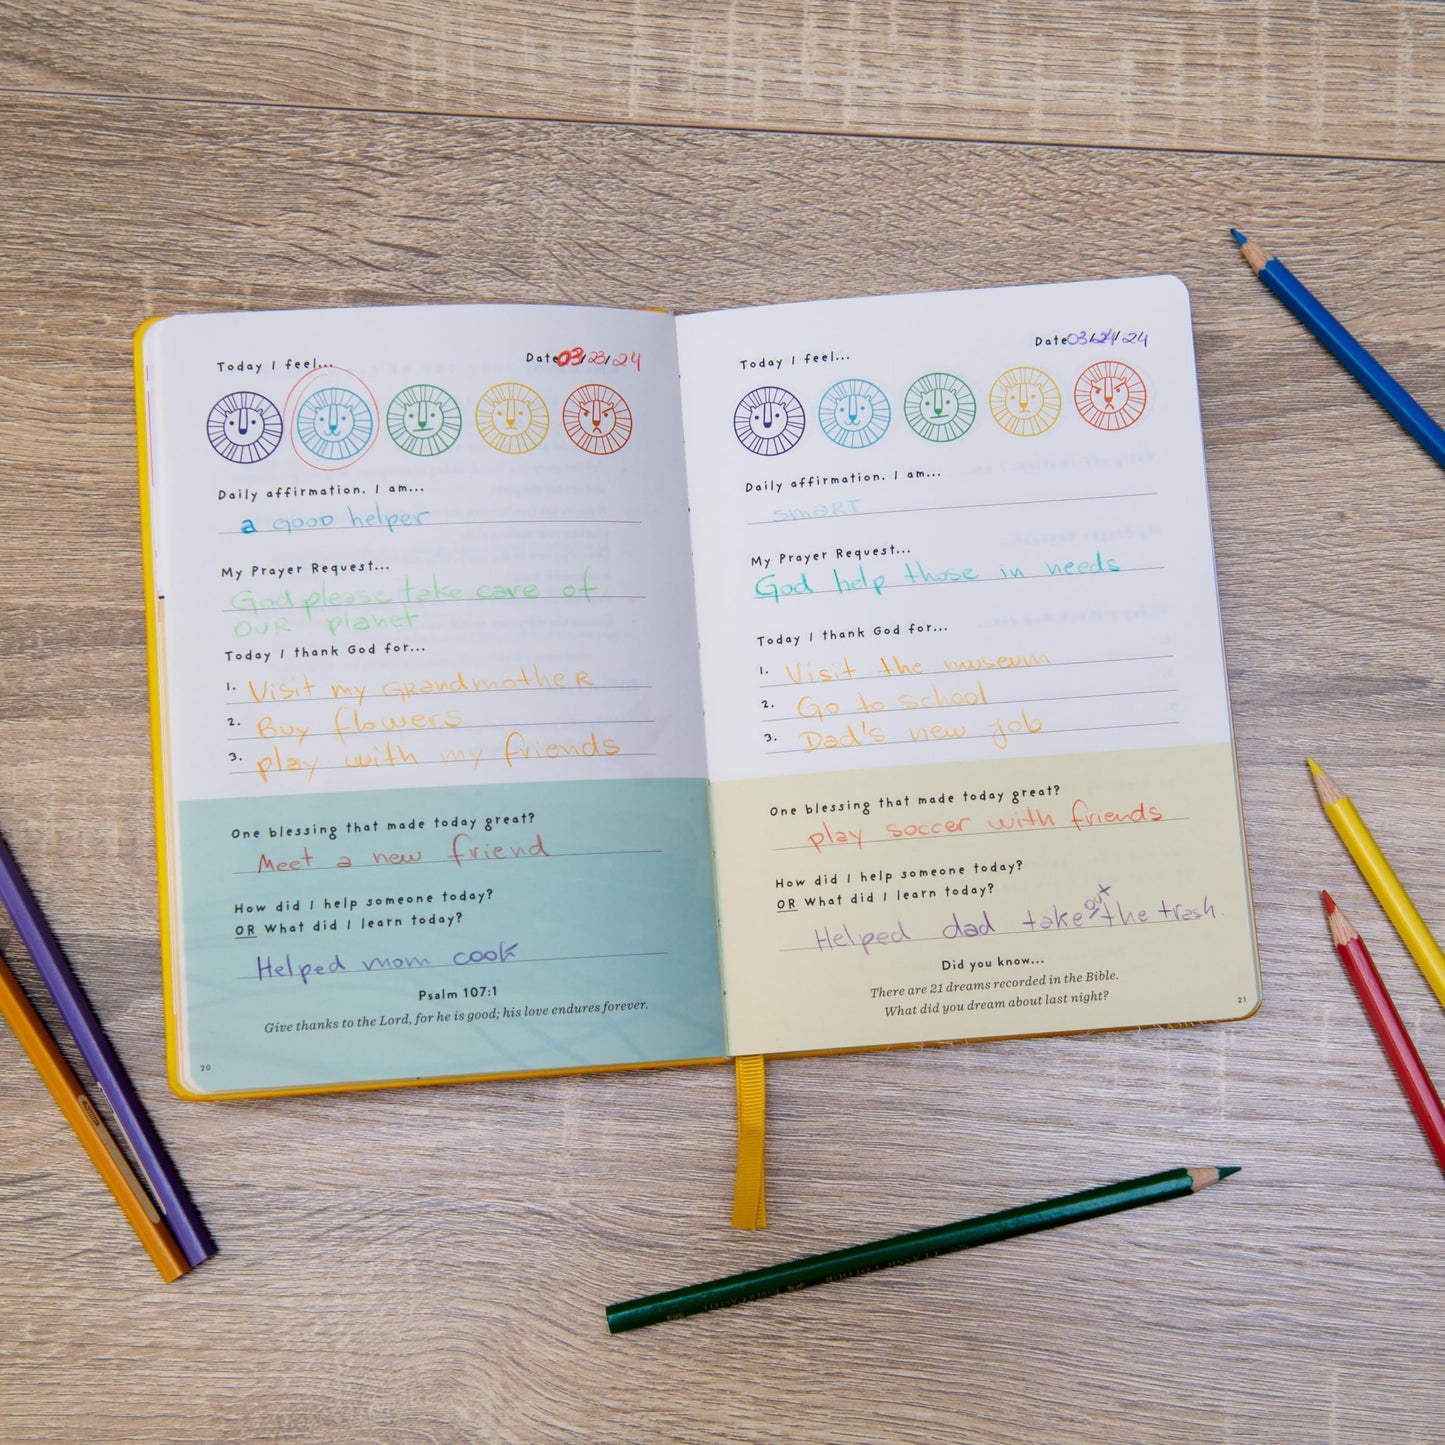 Today I feel...
Date 03/23/24
Daily affirmation. I am...
a GOOD helper
My Prayer Request...
God please take care of
OUR planet
Today I thank God for...
1. Visit my GRandmotheR
2. Buy flowers
3. play with my friends
One blessing that made today great?
Meet a new friend
How did I help someone today?
OR What did I learn today?
Helped mom cook
Psalm 107:1
Give thanks to the Lord, for he is good; his love endures forever.
20
Today I feel...
Date 03/24/24
Daily affirmation. I am...
smaRT
My Prayer Request...
God help those in needs
Today I thank God for...
1. Visit the museum
2. Go to school
3. Dad's new job
One blessing that made today great?
play soccer with friends
How did I help someone today?
OR What did I learn today?
Helped dad take out the trash.
Did you know...
There are 21 dreams recorded in the Bible.
What did you dream about last night?
21